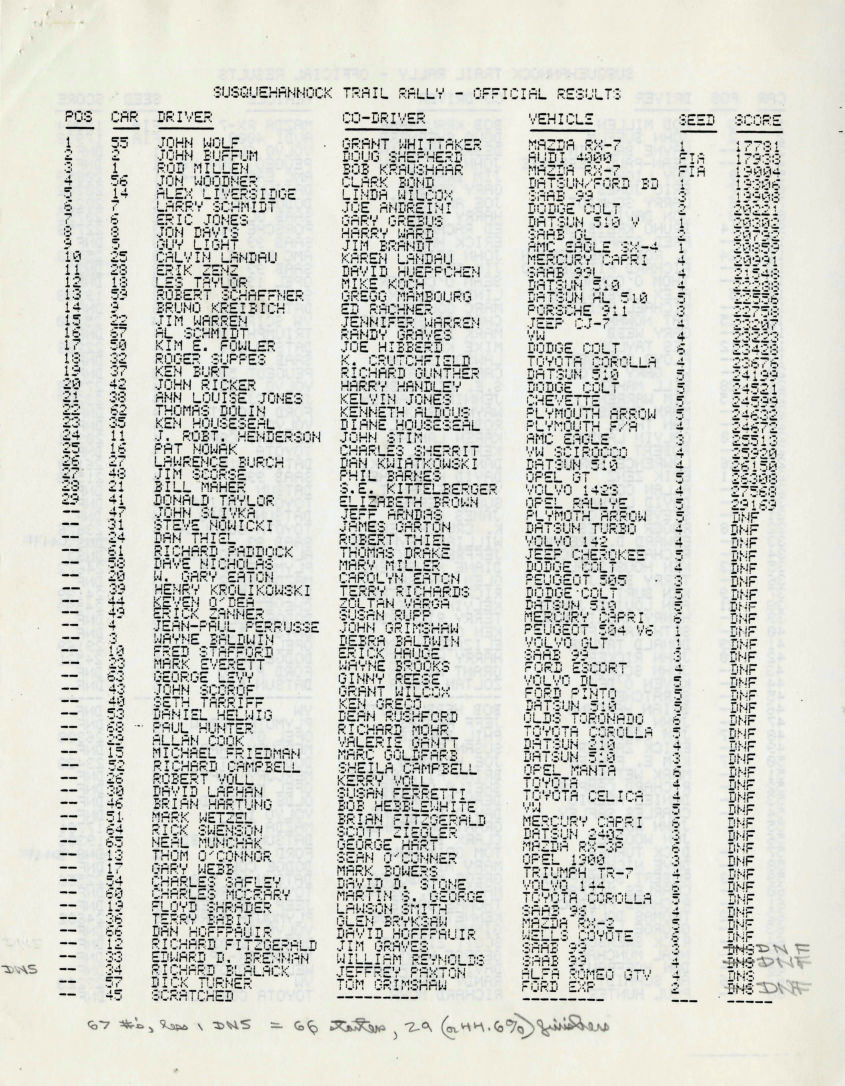 SUSQUEHANNOCK TRAIL RALLY - OFFICIAL RESULTS
POS CAR DRIVER CO-DRIVER VEHICLE SEED SCORE
1 55 JOHN WOLF GRANT WHITTAKER MAZDA RX-7 1 17781
2 2 JOHN BUFFUM DOUG SHEPHERD AUDI 4000 FIA 17938
3 1 ROD MILLEN BOB KRAUSHAAR MAZDA RX-7 FIA 19004
4 56 JON WOODNER CLARK BOND DATSUN/FORD BD 1 19306
5 14 ALEX LIVERSIDGE LINDA WILCOX SAAB 99 3 19908
6 7 LARRY SCHMIDT JOE ANDREINI DODGE COLT 2
7 6 ERIC JONES GARY GREBUS DATSUN 510 V 1
8 8 JON DAVIS HARRY WARD SAAB GL
9 5 GUY LIGHT JIM BRANDT AMC EAGLE SX-4
10 25 CALVIN LANDAU KAREN LANDAU MERCURY CAPRI 4 20991
11 28 ERIK ZENZ DAVID HUEPPCHEN SAAB 99L 4 21548
12 18 LES TAYLOR MIKE KOCH DATSUN 510 4
13 59 ROBERT SCHAFFNER GREGG MAMBOURG DATSUN HL 510 5 22556
14 9 BRUNO KREIBICH ED RACHNER PORSCHE 911 3 22758
15 22 JIM WARREN JENNIFER WARREN JEEP CJ-7 4 23207
16 57 AL SCHMIDT RANDY GRAVES VW
17 50 KIM E. FOWLER JOE HIBBERD DODGE COLT 6
18 32 ROGER SUPPES K. CRUTCHFIELD TOYOTA COROLLA 4
19 37 KEN BURT RICHARD GUNTHER DATSUN 510
20 42 JOHN RICKER HARRY HANDLEY DODGE COLT 5
21 38 ANN LOUISE JONES KELVIN JONES CHEVETTE 5
22 62 THOMAS DOLIN KENNETH ALDOUS PLYMOUTH ARROW 5
23 35 KEN HOUSESEAL DIANE HOUSESEAL PLYMOUTH F/A 4
24 11 J. ROBT. HENDERSON JOHN STIM AMC EAGLE 3 25513
25 16 PAT NOWAK CHARLES SHERRIT VW SCIROCCO 4 25920
26 27 LAWRENCE BURCH DAN KWIATKOWSKI DATSUN 510 4 26150
27 48 JIM SCORSE PHIL BARNES OPEL GT 5 26308
28 21 BILL MAHER S.E. KITTELBERGER VOLVO 142S 4 27568
29 41 DONALD TAYLOR ELIZABETH BROWN OPEL RALLYE 5 29169
-- 47 JOHN SLIVKA JEFF ARNDAS PLYMOTH ARROW 5 DNF
-- 31 STEVE NOWICKI JAMES GARTON DATSUN TURBO DNF
-- 24 DAN THIEL ROBERT THIEL VOLVO 142 4 DNF
-- 61 RICHARD PADDOCK THOMAS DRAKE JEEP CHEROKEE 5 DNF
-- 58 DAVE NICHOLAS MARY MILLER DODGE COLT 4 DNF
-- 20 W. GARY EATON CAROLYN EATON PEUGEOT 505 3 DNF
-- 39 HENRY KROLIKOWSKI TERRY RICHARDS DODGE COLT 5 DNF
-- 44 KEVEN O'DEA ZOLTAN VARGA DATSUN 510 5 DNF
-- 49 ERICK ZANNER SUSAN RUPP MERCURY CAPRI 6 DNF
-- 4 JEAN-PAUL PERRUSSE JOHN GRIMSHAW PEUGEOT 504 V6 1 DNF
-- 3 WAYNE BALDWIN DEBRA BALDWIN VOLVO GLT DNF
-- 10 FRED STAFFORD ERICK HAUGE SAAB 99 DNF
-- 23 MARK EVERETT WAYNE BROOKS FORD ESCORT 4 DNF
-- 63 GEORGE LEVY GINNY REESE VOLVO DL 5 DNF
-- 43 JOHN SCOROF GRANT WILCOX FORD PINTO 5 DNF
-- 40 SETH TARRIFF KEN GRECO DATSUN 510 5 DNF
-- 53 DANIEL HELWIG DEAN RUSHFORD OLDS TORONADO 6 DNF
-- PAUL HUNTER RICHARD MOHR TOYOTA COROLLA 5 DNF
-- ALLAN COOK VALERIE GANTT DATSUN 210 4 DNF
-- 15 MICHAEL FRIEDMAN MARC GOLDFARB DATSUN 510 3 DNF
-- 52 RICHARD CAMPBELL SHEILA CAMPBELL OPEL MANTA 6 DNF
-- 26 ROBERT VOLL KERRY VOLL TOYOTA 4 DNF
-- 30 DAVID LAPHAN SUSAN FERRETTI TOYOTA CELICA 4 DNF
-- 46 BRIAN HARTUNG BOB HEBBLEWHITE VW 5 DNF
-- 51 MARK WETZEL BRIAN FITZGERALD MERCURY CAPRI 6 DNF
-- 64 RICK SWENSON SCOTT ZIEGLER DATSUN 240Z DNF
-- 65 NEAL MUNCHAK GEORGE HART MAZDA RX-3P 6 DNF
-- 13 THOM O'CONNOR SEAN O'CONNER OPEL 1900 3 DNF
-- 17 GARY WEBB MARK BOWERS TRIUMPH TR-7 4 DNF
-- 54 CHARLES SAFLEY DAVID D. STONE VOLVO 144 6 DNF
-- 60 CHARLES MCCRARY MARTIN S. GEORGE TOYOTA COROLLA 5 DNF
-- 19 FLOYD SHRADER LAWSON SMITH SAAB 96 4 DNF
-- 36 TERRY BABIJ GLEN BRYKSAW MAZDA RX-2 DNF
-- 66 DAN HOFFPAUIR DAVID HOFFPAUIR WELLS COYOTE 6 DNF
-- 12 RICHARD FITZGERALD JIM GRAVES SAAB 99 3 DNS DNF
-- 33 EDWARD D. BRENNAN WILLIAM REYNOLDS SAAB 99 4 DNS DNF
DNS -- 34 RICHARD BLALACK JEFFREY PAXTON ALFA ROMEO GTV 4 DNS
-- 57 DICK TURNER TOM GRIMSHAW FORD EXP 2 DNS DNF
-- 45 SCRATCHED ---------- ---------- --- -----
67 #'s, less 1 DNS = 66 starters, 29 (or 44.6%) finishers